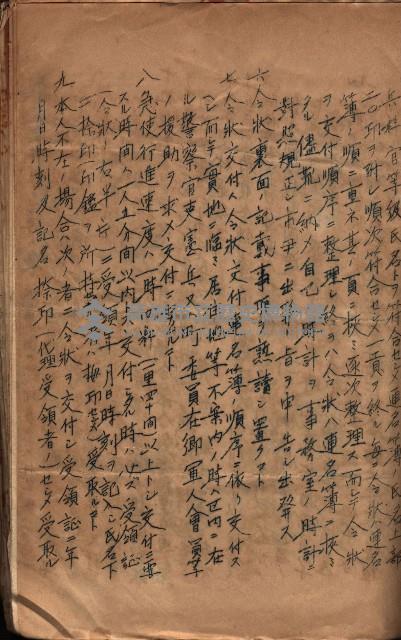 兵科官等級氏名トヲ符合セシメ連名簿氏名上部
ニ〇印ヲ附シ順次符合セシメ一頁ヲ終ル毎ニ令状ハ連名
簿ノ順ニ重ネ其ノ頁ニ挾ミ逐次整理ス而シテ令状
ヲ交付順序ニ整理シ終ラバ令状ハ連名簿ニ挾ミ
タル儘 ニ納メ自己ノ時計ヲ事務室ノ時計ニ
対照規正シ 出 旨ヲ申告シ出発ス
六令状裏面ノ記載事項ヲ熟讀シ置クコト
七令状交付ハ令状交付連名簿ノ順序ニ依リ交付ス
ベシ而シテ實地ニ臨ミ居住地等不案内ノ時ハ区内ニ在
ル警察官吏憲兵又ハ 委員在郷軍人會員等
ノ援助ヲ求メ交付スルコト
八急使行進速度ハ一時間ニ付一里四十間以上トシ交付ニ要
スル時間ハ一人五分間以内トス交付シタル時ハ必ズ受領証
(令状ノ右半片)ニ受領年月日時刻ヲ記入シ氏名下
ニ捺印(印鑑ヲ所持 拇印セシメ)受取ルコト
九本人不在ノ場合ハ次ノ者ニ令状ヲ交付シ受領証ニ年
月日時刻及記名捺印(代理受領者 )セシメ受取ル